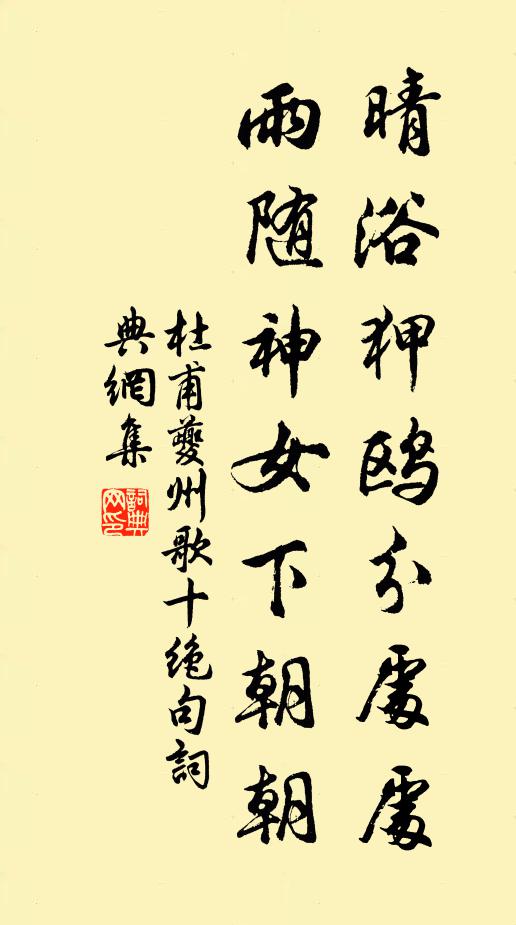 晴浴狎鸥分處處
雨随神女下朝朝
杜甫夔州歌十绝句詞
典網集
詞典
网印